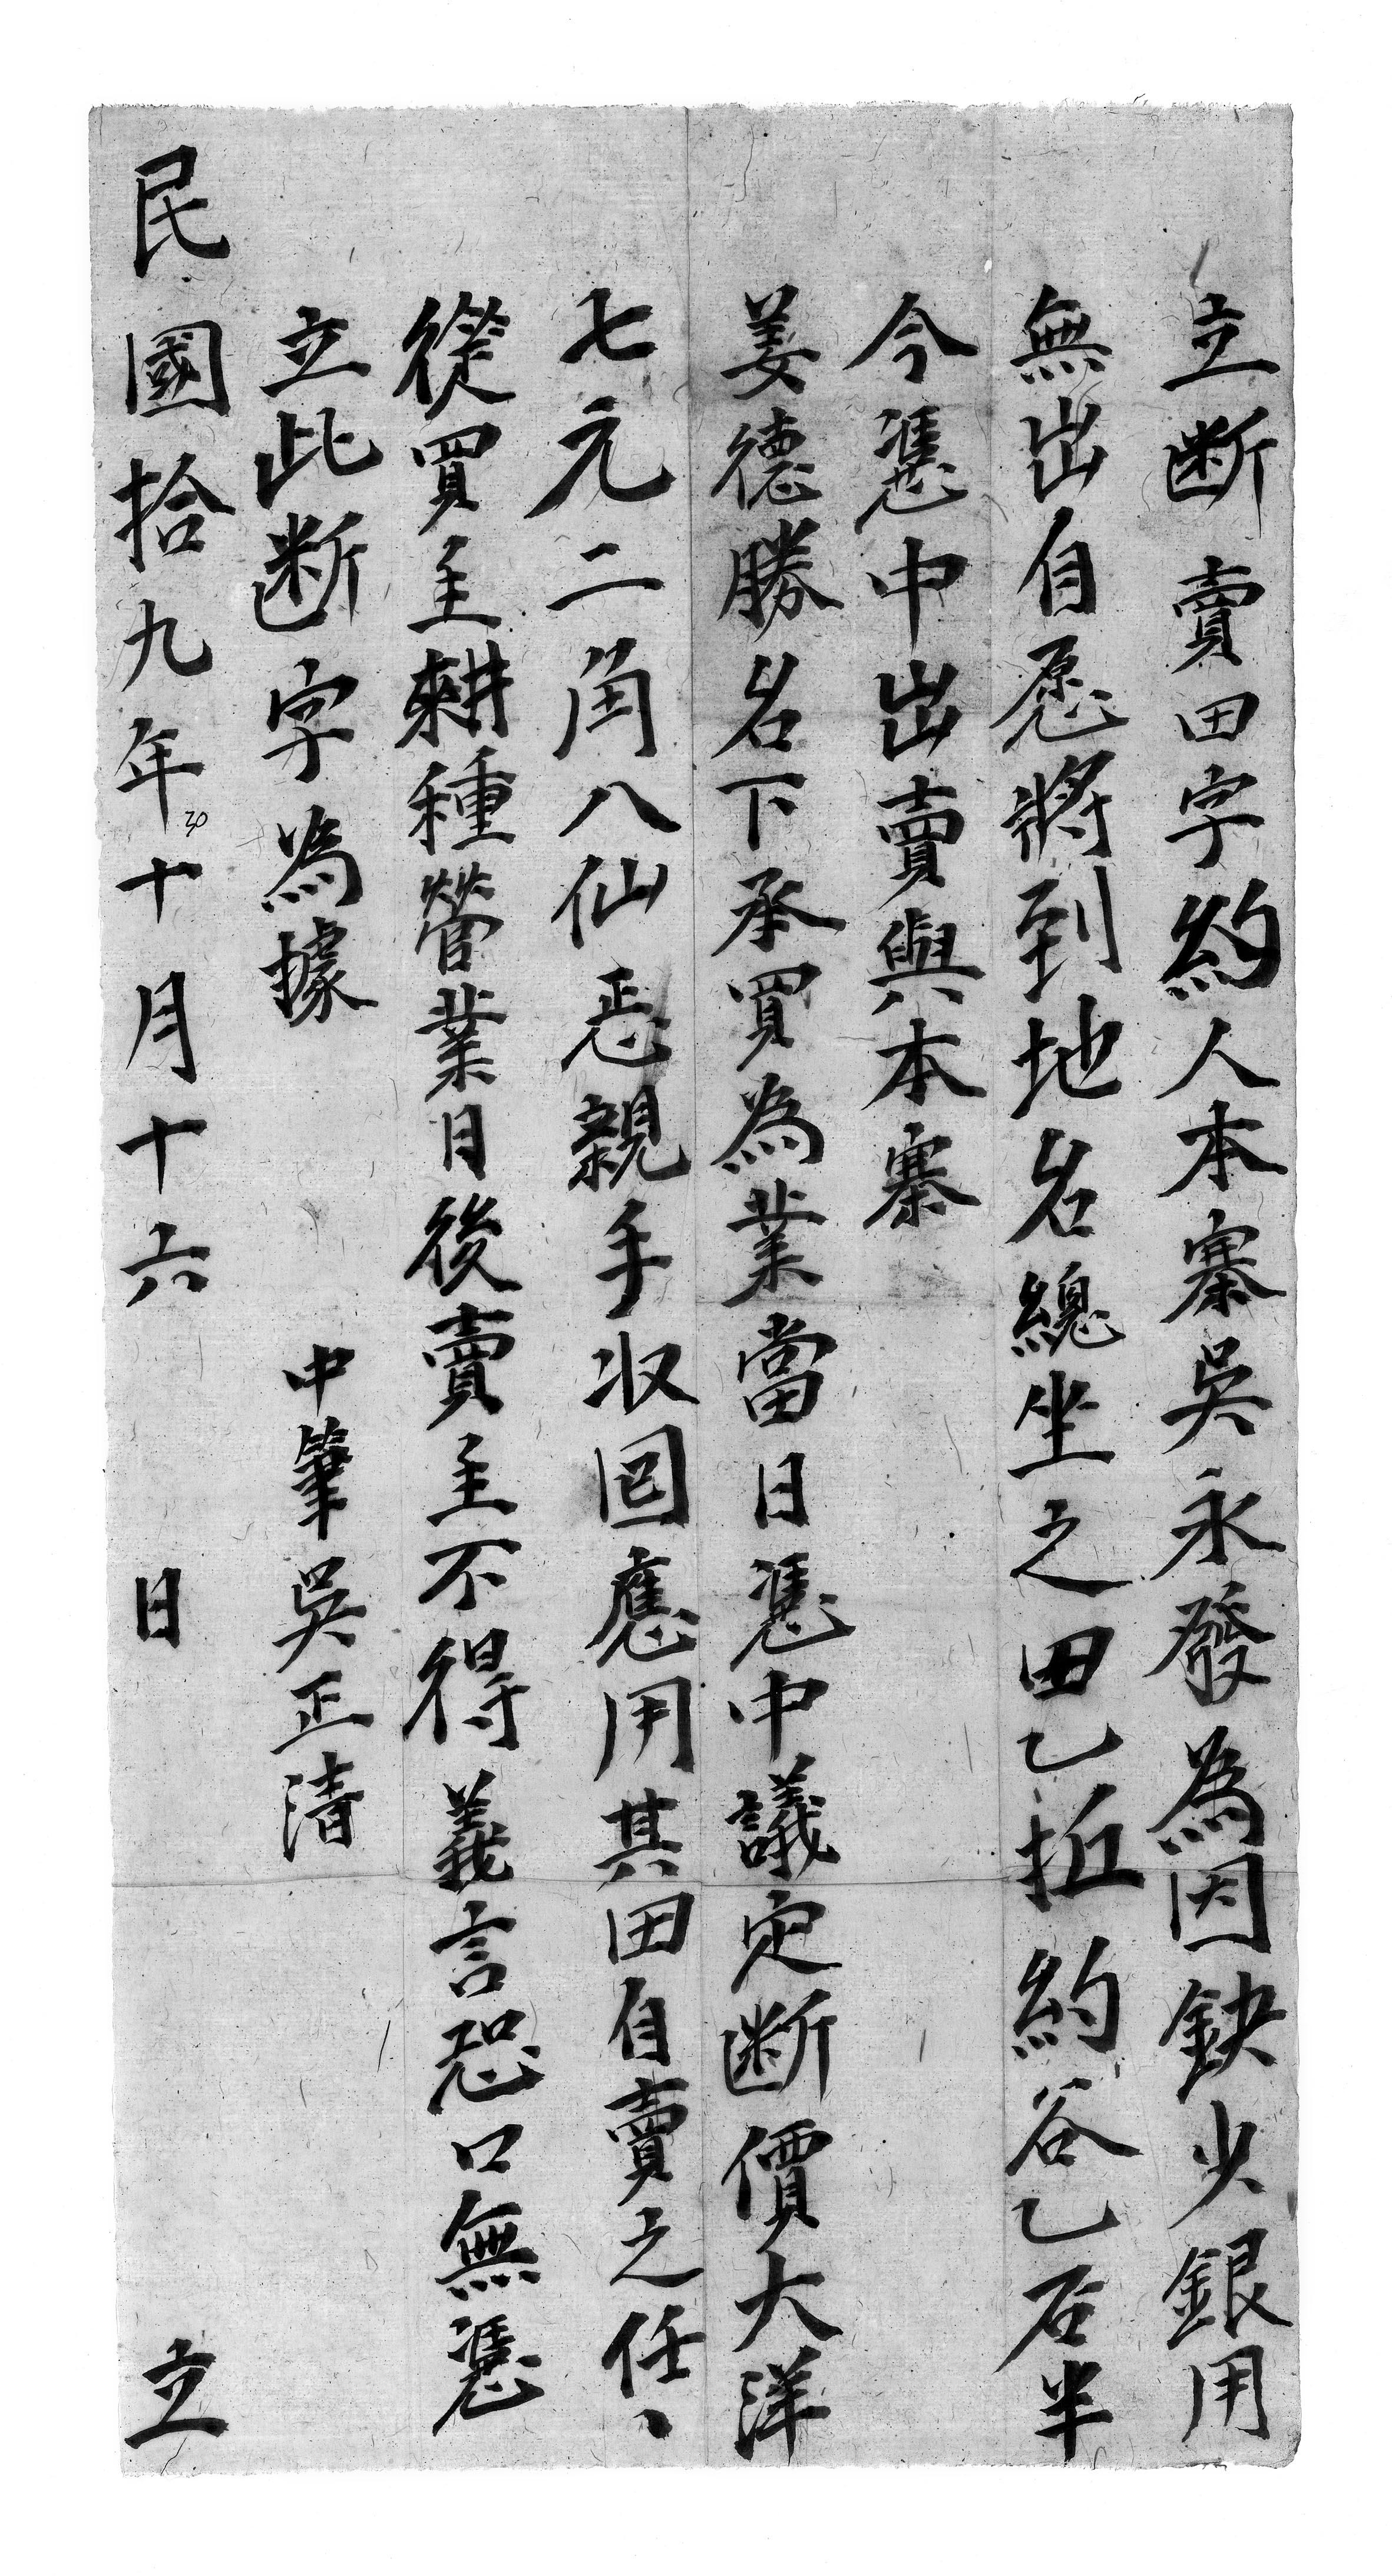 立断賣田字約人本寨吳永發為因缺少銀用
無出自愿將到地名總坐之田乙坵約谷乙石半
今憑中出賣與本寨
姜德勝名下承買為業當日憑中議定断價大洋
七元二角八仙恧親手收囘應用其田自賣之任、
從買主耕種管業日後賣主不得義言恐口無憑
立此断字為據
中筆吳正清
民國拾九年十月十六日立
30